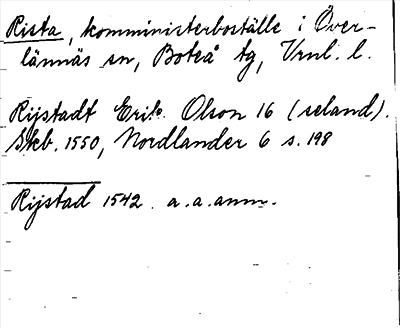 Rista, komministerboställe i Över-
lännäs sn, Boteå tg, Vrnl. l.
Rijstadt Erik Olson 16 (seland).
Skb. 1550, Nordlander 6 s. 198
Rijstad 1542. a.a.anm.